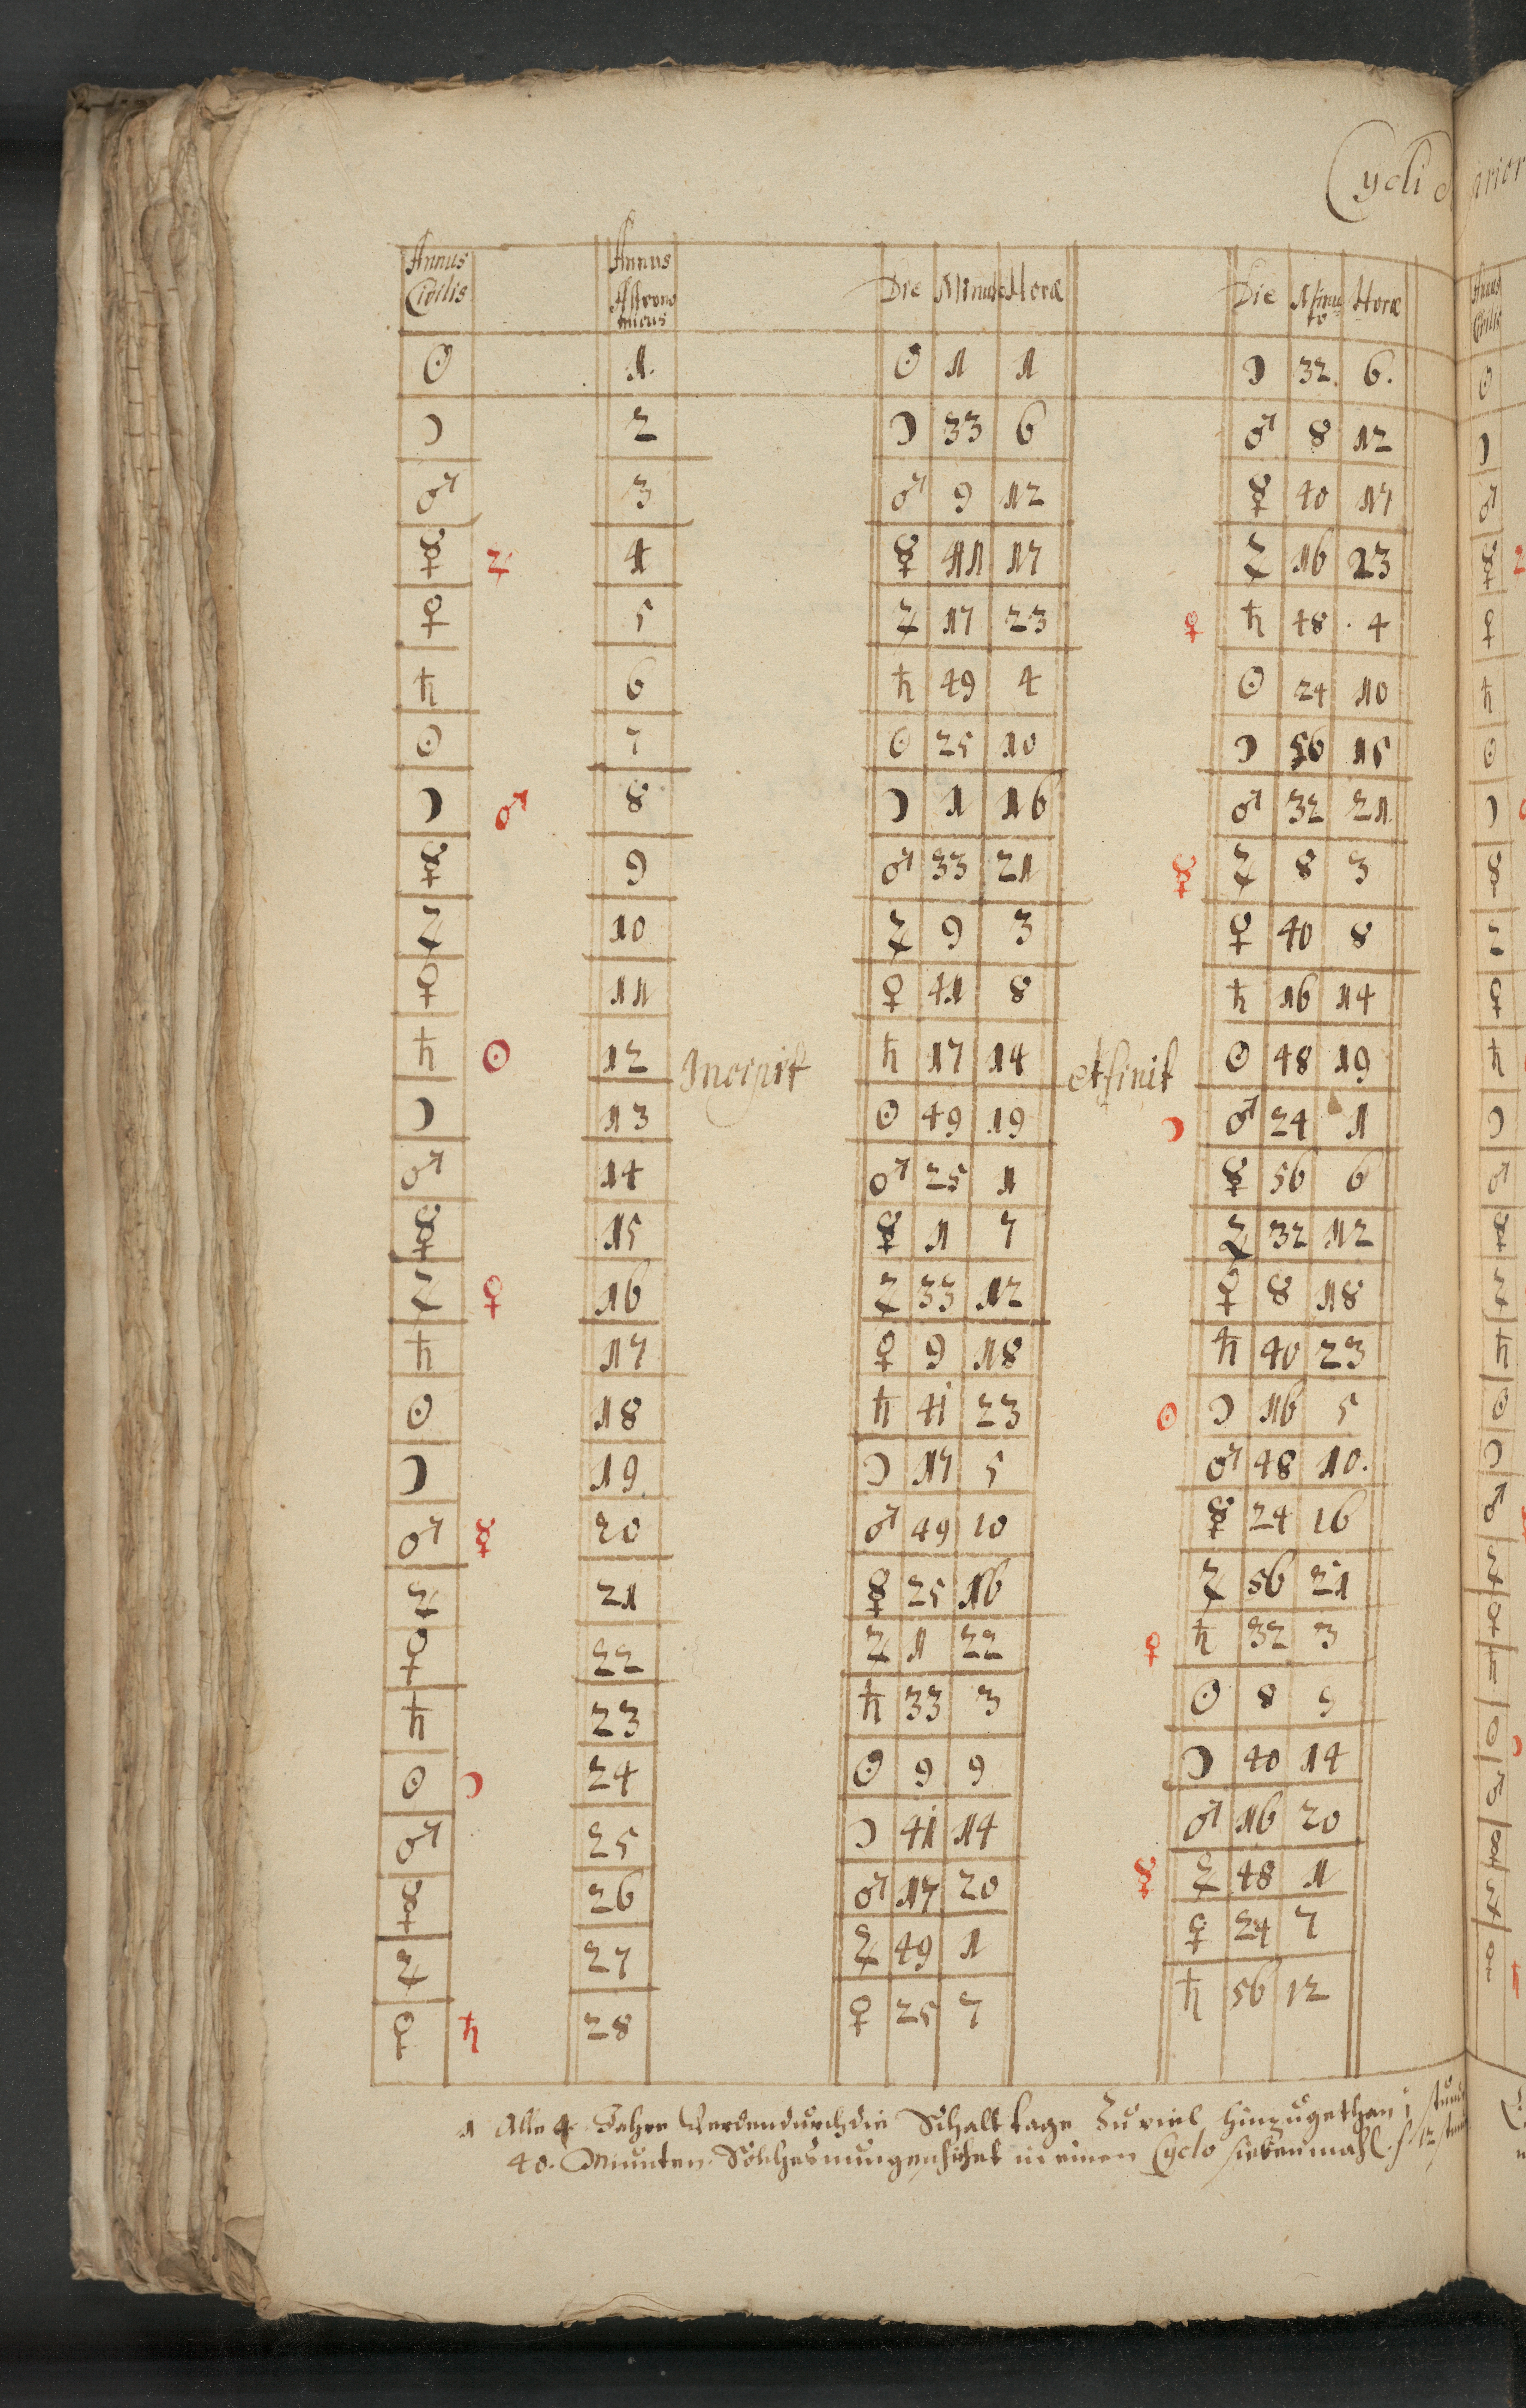 Cycli
Annus Civilis Annus Astronomicus Die Minuto Horæ Die Minuto Horæ
☉ 1. ☉ 1 1 ☽ 32. 6.
☽ 2 ☽ 33 6 ♂ 8 12
♂ 3 ♂ 9 12 ☿ 40 17
☿ ♃ 4 ☿ 41 17 ♃ 16 23
♀ 5 ♃ 17 23 ♀ ♄ 48 4
♄ 6 ♄ 49 4 ☉ 24 10
☉ 7 ☉ 25 10 ☽ 56 15
☽ ♂ 8 ☽ 1 16 ♂ 32 21
☿ 9 ♂ 33 21 ☿ ♃ 8 3
♃ 10 ♃ 9 3 ♀ 40 8
♀ 11 ♀ 41 8 ♄ 16 14
♄ ☉ 12 Incipit ♄ 17 14 et finit ☉ 48 19
☽ 13 ☉ 49 19 ☽ ♂ 24 1
♂ 14 ♂ 25 1 ☿ 56 6
☿ 15 ☿ 1 7 ♃ 32 12
♃ ♀ 16 ♃ 33 12 ♀ 8 18
♄ 17 ♀ 9 18 ♄ 40 23
☉ 18 ♄ 41 23 ☉ ☽ 16 5
☽ 19 ☽ 17 5 ♂ 48 10.
♂ ☿ 20 ♂ 49 10 ☿ 24 16
♃ 21 ☿ 25 16 ♃ 56 21
♀ 22 ♃ 1 22 ♀ ♄ 32 3
♄ 23 ♄ 33 3 ☉ 8 9
☉ ☽ 24 ☉ 9 9 ☽ 40 14
♂ 25 ☽ 41 14 ♂ 16 20
☿ 26 ♂ 17 20 ☿ ♃ 48 1
♃ 27 ♃ 49 1 ♀ 24 7
♀ ♄ 28 ♀ 25 7 ♄ 56 12
1 Alle 4 Jahre werden durch die Schalttage Zuviel hinzugethan
40. Minuten. Solches nun geschihet in einen Cyclo sieben mahl.